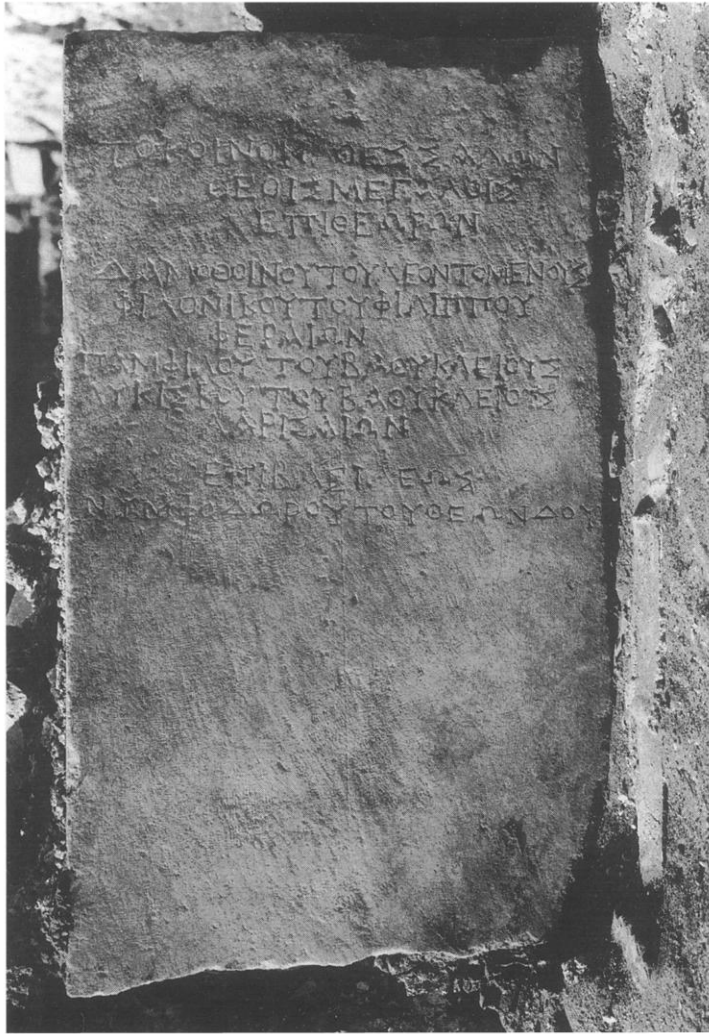 ΤΟΚΟΙΝΟΝΘΕΣΣΑΛΩΝ
ΘΕΟΙΣΜΕΓΑΛΟΙΣ
ΕΠΙΘΕΩΡΩΝ
ΔΑΜΟΘΟΙΝΟΥΤΟΥΛΕΟΝΤΟΜΕΝΟΥΣ
ΦΙΛΟΝΙΚΟΥΤΟΥΦΙΛΙΠΠΟΥ
ΦΕΡΑΙΩΝ
ΠΑΜΦΙΛΟΥΤΟΥΒΑΘΥΚΛΕΙΟΥΣ
ΛΥΚΙΣΚΟΥΤΟΥΒΑΘΥΚΛΕΙΟΥΣ
ΛΑΡΙΣΑΙΩΝ
ΕΠΙΒΑΣΙΛΕΩΣ
ΝΥΜΦΟΔΩΡΟΥΤΟΥΘΕΩΝΔΟΥ